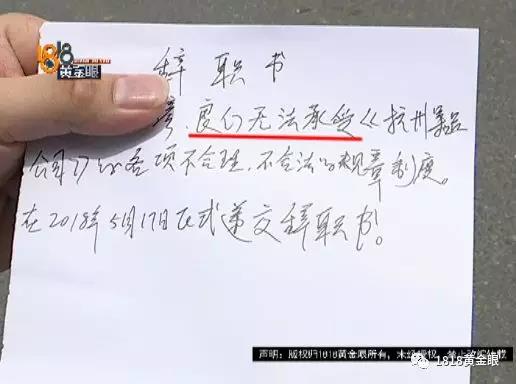 1818
黄金眼
辞职书
我们无法承受《杭州
公司》的各项不合理,不合法的规章制度。
在2018年5月17日正式递交辞职书。
声明:版权归1818黄金眼所有,未经授权,禁止改编转载
1818黄金眼